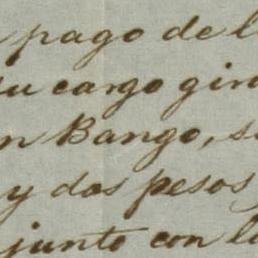 pago de l
su cargo gir
n Bango, s
y dos pesos
junto con l